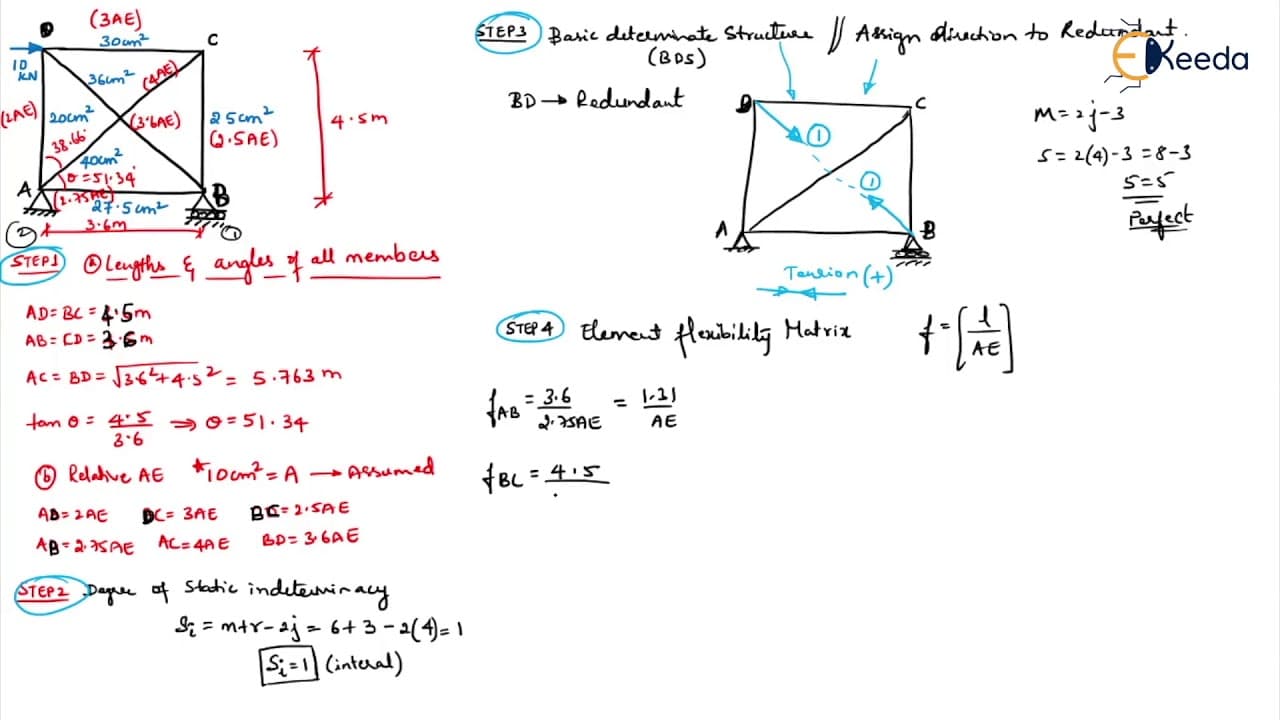 (3AE)
30cm²
D
C
10
KN
36cm²
(4AE)
(2AE)
20cm²
(3.6AE)
25cm²
(2.5AE)
4.5m
38.66
40cm²
θ=51.34
A
B
(2.75AE)
27.5cm²
3.6m
②
①
STEP1 ⓐ Lengths & angles of all members
AD=BC=4.5m
AB=CD=3.6m
AC=BD=√3.6²+4.5² = 5.763m
tan θ = 4.5/3.6 ⇒ θ=51.34
ⓑ Relative AE *10cm²=A → Assumed
AD=2AE DC=3AE BC=2.5AE
AB=2.75AE AC=4AE BD=3.6AE
STEP2 Degree of static indeterminacy
Si = m+r-2j = 6+3-2(4)=1
Si=1 (interal)
STEP3 Basic determinate Structure // Assign direction to Redundant.
(BDS)
EKeeda
BD → Redundant
D
C
①
①
A
B
Tension (+)
m=2j-3
5=2(4)-3=8-3
5=5
Perfect
STEP4 Element flexibility Matrix f=[l/AE]
fAB = 3.6/2.75AE = 1.31/AE
fBC = 4.5